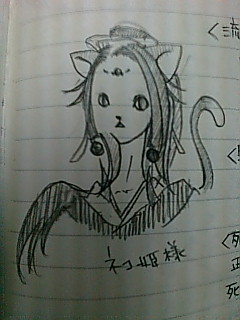 <流
ネコ姫様
<死
正
死